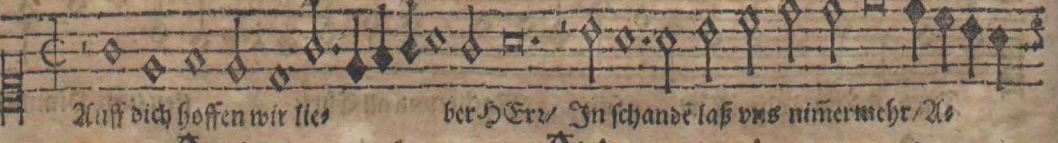 Auff dich hoffen wir lie⸗ ber HErr/ In schandē laß vns nim̄ermehr/ A⸗